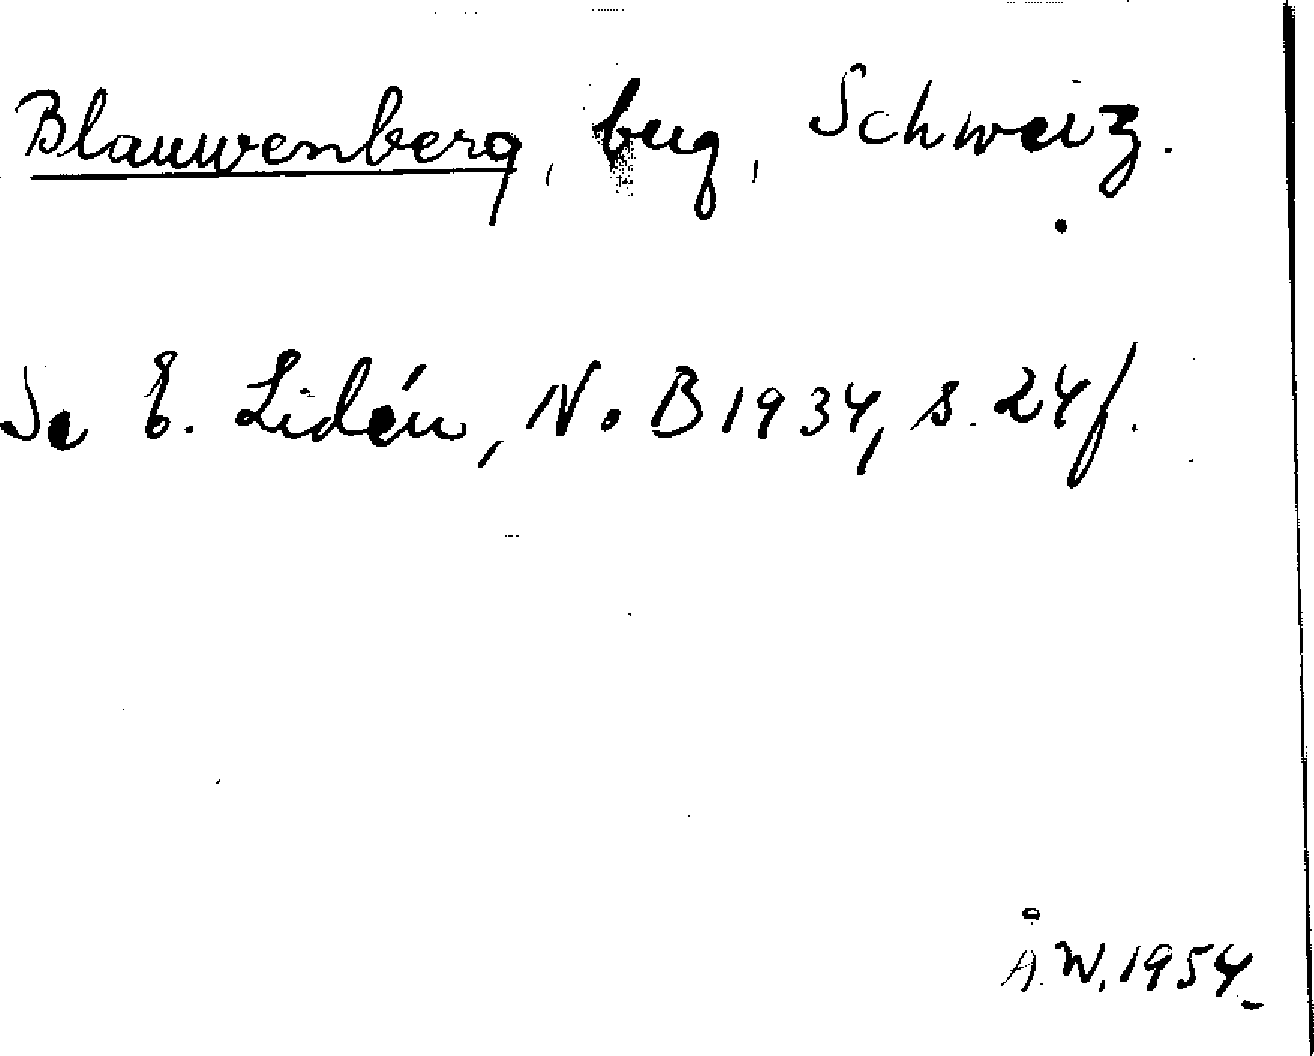 Blauwenberg, berg, Schweiz.
Se E. Lidén, NoB 1934, s. 24f.
Å.W. 1954